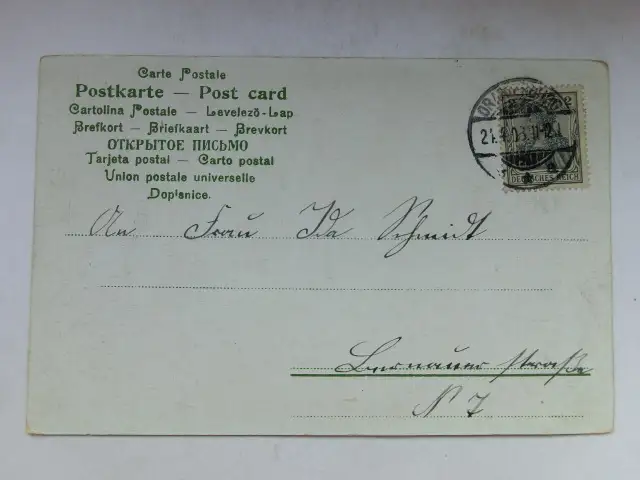 Carte Postale
Postkarte — Post card
Cartolina Postale — Levelező-Lap
Brefkort — Briefkaart — Brevkort
ОТКРЫТОЕ ПИСЬМО
Tarjeta postal — Carto postal
Union postale universelle
Dopisnice.
DEUTSCHES REICH
An Frau Ida Schmidt
Bernauer straße
N 7